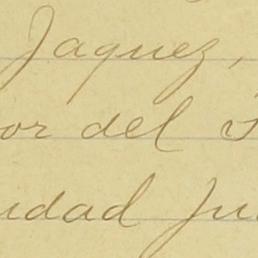 Jaquez,
or del
udad Ju